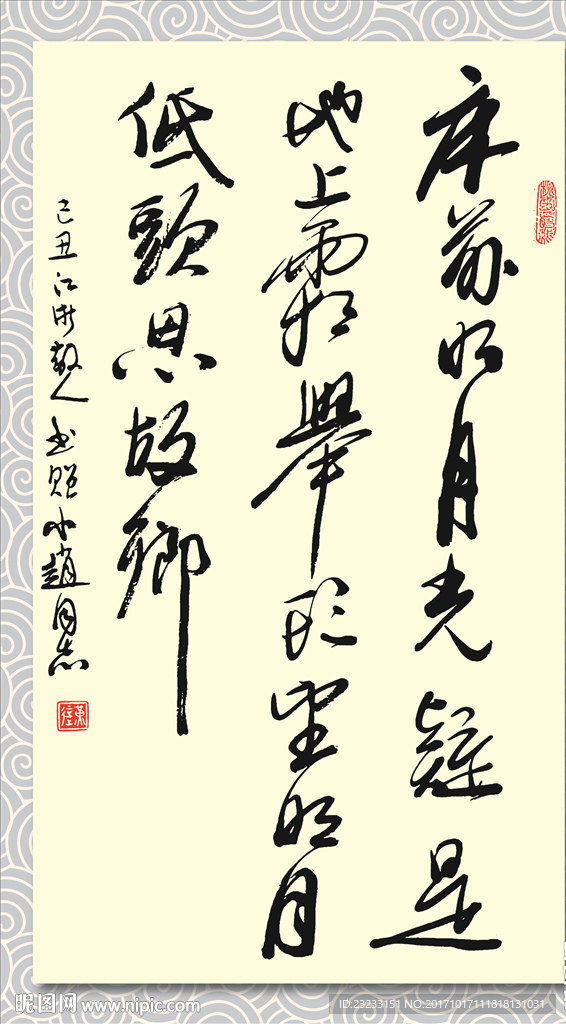 床前明月光疑是
地上霜舉頭望明月
低頭思故鄉
己丑江浙散人书赠小趙同志
昵图网 www.nipic.com
ID:23233151 NO:20171017111818131031